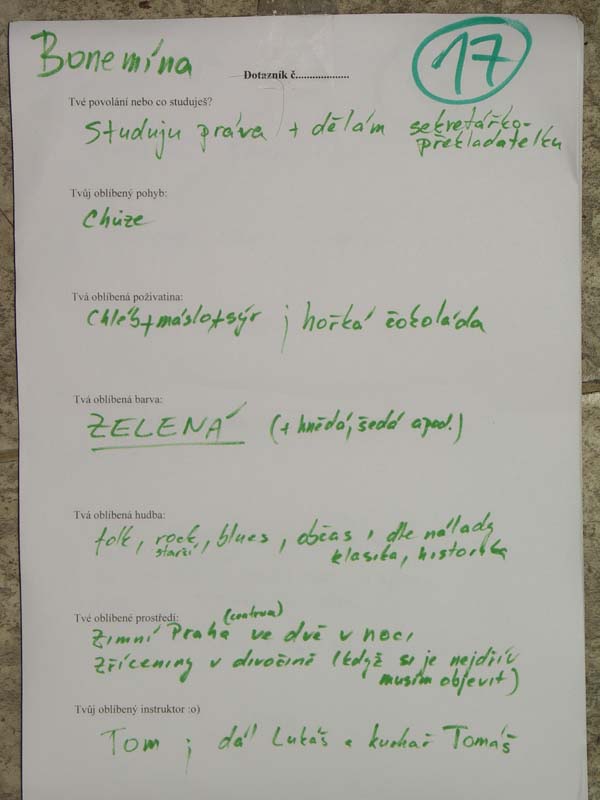 Bonemína
17
Dotazník č...................
Tvé povolání nebo co studuješ?
Studuju práva + dělám sekretářko-
překladatelku
Tvůj oblíbený pohyb:
Chůze
Tvá oblíbená poživatina:
Chléb+máslo+sýr ; hořká čokoláda
Tvá oblíbená barva:
ZELENÁ (+ hnědá, šedá apod.)
Tvá oblíbená hudba:
folk, rock, blues, občas, dle nálady
starší
klasika, historika
Tvé oblíbené prostředí:
(centrum)
Zimní Praha ve dvě v noci,
Zříceniny v divočině (když si je nejdřív
musím objevit)
Tvůj oblíbený instruktor :o)
Tom ; dál Lukáš a kuchař Tomáš